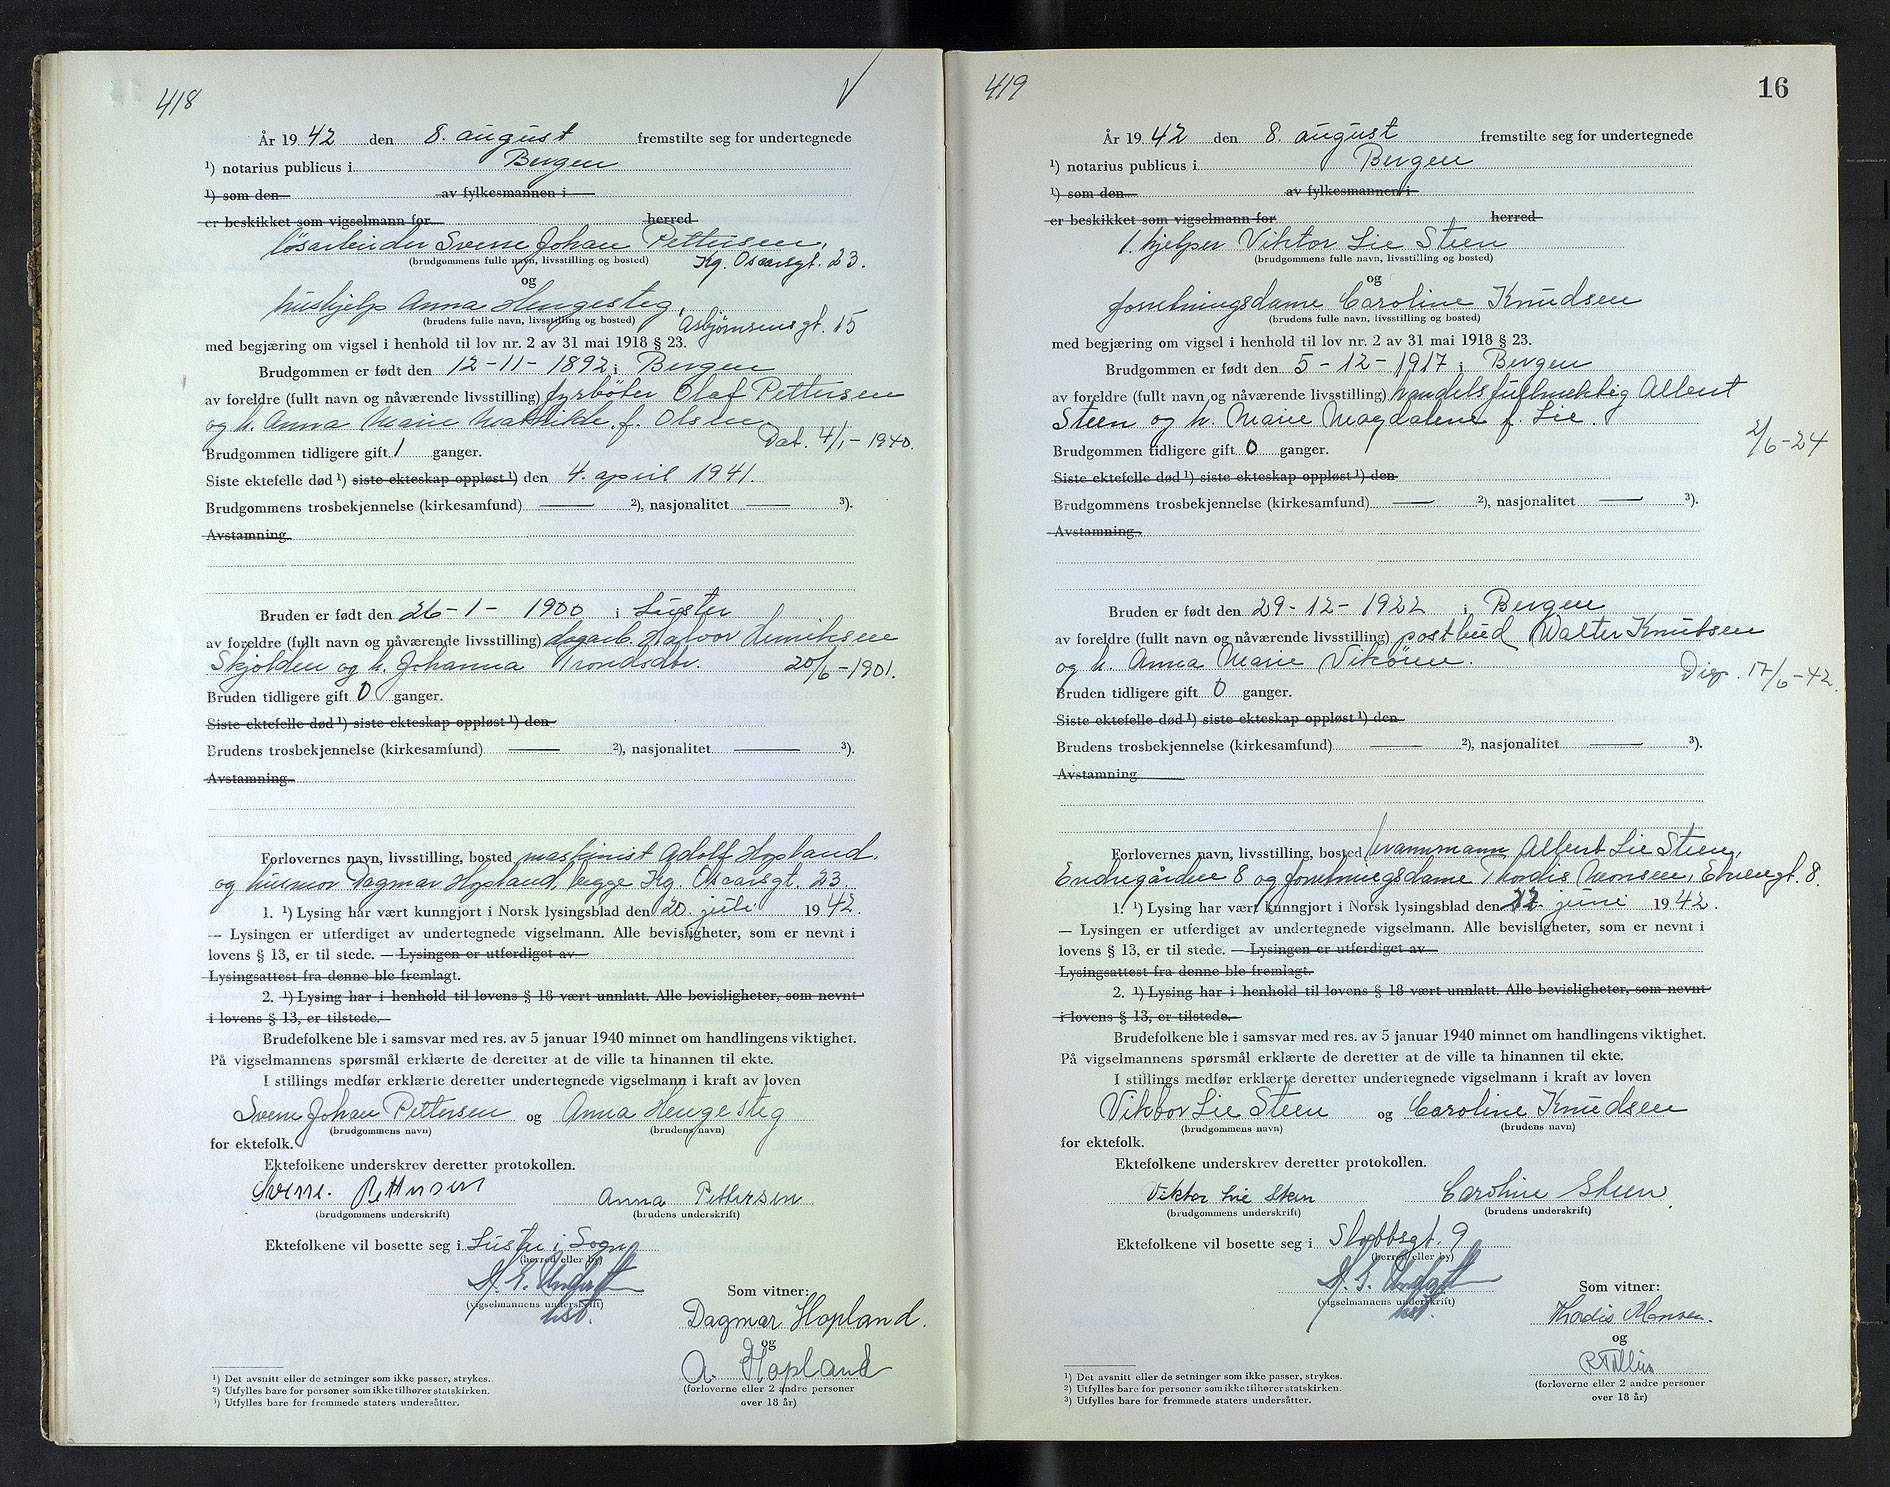 418
År 1942 den 8. august fremstilte seg for undertegnede
¹) notarius publicus i Bergen
¹) som den av fylkesmannen i
er beskikket som vigselmann for herred
løsarbeider Sverre Johan Pettersen,
(brudgommens fulle navn, livsstilling og bosted) Kg. Oscarsgt. 23.
og
hushjelp Anna Hengesteg,
(brudens fulle navn, livsstilling og bosted) Asbjørnsensgt. 15
med begjæring om vigsel i henhold til lov nr. 2 av 31 mai 1918 § 23.
Brudgommen er født den 12-11-1892 i Bergen
av foreldre (fullt navn og nåværende livsstilling) fyrbøter Olaf Pettersen
og h. Anna Marie Mathilde f. Olsen.
Dat. 4/1-1940.
Brudgommen tidligere gift 1 ganger.
Siste ektefelle død ¹) siste ekteskap oppløst ¹) den 4. april 1941.
Brudgommens trosbekjennelse (kirkesamfund) — ²), nasjonalitet — ³).
Avstamning
Bruden er født den 26-1-1900 i Luster
av foreldre (fullt navn og nåværende livsstilling) dagarb. Halvor Henriksen
Skjolden og h. Johanna Trondsdtr. 20/6-1901.
Bruden tidligere gift 0 ganger.
Siste ektefelle død ¹) siste ekteskap oppløst ¹) den
Brudens trosbekjennelse (kirkesamfund) — ²), nasjonalitet — ³).
Avstamning
Forlovernes navn, livsstilling, bosted maskinist Adolf Hopland.
og husmor Dagmar Hopland, begge Kg. Oscarsgt. 23.
1. ¹) Lysing har vært kunngjort i Norsk lysingsblad den 20. juli 1942.
— Lysingen er utferdiget av undertegnede vigselmann. Alle bevisligheter, som er nevnt i
lovens § 13, er til stede. — Lysingen er utferdiget av
Lysingsattest fra denne ble fremlagt.
2. ¹) Lysing har i henhold til lovens § 18 vært unnlatt. Alle bevisligheter, som nevnt
i lovens § 13, er tilstede.
Brudefolkene ble i samsvar med res. av 5 januar 1940 minnet om handlingens viktighet.
På vigselmannens spørsmål erklærte de deretter at de ville ta hinannen til ekte.
I stillings medfør erklærte deretter undertegnede vigselmann i kraft av loven
Sverre Johan Pettersen og Anna Hengesteg
(brudgommens navn) (brudens navn)
for ektefolk.
Ektefolkene underskrev deretter protokollen.
Sverre. Pettersen Anna Pettersen
(brudgommens underskrift) (brudens underskrift)
Ektefolkene vil bosette seg i Luster i Sogn
(herred eller by)
(vigselmannens underskrift)
Som vitner:
Dagmar Hopland.
og
A. Hopland
(forloverne eller 2 andre personer
over 18 år)
¹) Det avsnitt eller de setninger som ikke passer, strykes.
²) Utfylles bare for personer som ikke tilhører statskirken.
³) Utfylles bare for fremmede staters undersåtter.
419
16
År 1942 den 8. august fremstilte seg for undertegnede
¹) notarius publicus i Bergen
¹) som den av fylkesmannen i
er beskikket som vigselmann for herred
1. hjelper Viktor Lie Steen
(brudgommens fulle navn, livsstilling og bosted)
og
forretningsdame Caroline Knudsen
(brudens fulle navn, livsstilling og bosted)
med begjæring om vigsel i henhold til lov nr. 2 av 31 mai 1918 § 23.
Brudgommen er født den 5-12-1917 i Bergen
av foreldre (fullt navn og nåværende livsstilling) handelsfullmektig Albert
Steen og h. Marie Magdalene f. Lie.
2/6-24
Brudgommen tidligere gift 0 ganger.
Siste ektefelle død ¹) siste ekteskap oppløst ¹) den
Brudgommens trosbekjennelse (kirkesamfund) — ²), nasjonalitet — ³).
Avstamning
Bruden er født den 29-12-1922 i Bergen
av foreldre (fullt navn og nåværende livsstilling) postbud Walter Knudsen
og h. Anna Marie Vikøren.
Disp. 17/6-42.
Bruden tidligere gift 0 ganger.
Siste ektefelle død ¹) siste ekteskap oppløst ¹) den
Brudens trosbekjennelse (kirkesamfund) — ²), nasjonalitet — ³).
Avstamning
Forlovernes navn, livsstilling, bosted brannmann Albert Lie Steen,
Endregården 8 og forretningsdame Thordis Monsen, 8.
1. ¹) Lysing har vært kunngjort i Norsk lysingsblad den 22. juni 1942.
— Lysingen er utferdiget av undertegnede vigselmann. Alle bevisligheter, som er nevnt i
lovens § 13, er til stede. — Lysingen er utferdiget av
Lysingsattest fra denne ble fremlagt.
2. ¹) Lysing har i henhold til lovens § 18 vært unnlatt. Alle bevisligheter, som nevnt
i lovens § 13, er tilstede.
Brudefolkene ble i samsvar med res. av 5 januar 1940 minnet om handlingens viktighet.
På vigselmannens spørsmål erklærte de deretter at de ville ta hinannen til ekte.
I stillings medfør erklærte deretter undertegnede vigselmann i kraft av loven
Viktor Lie Steen og Caroline Knudsen
(brudgommens navn) (brudens navn)
for ektefolk.
Ektefolkene underskrev deretter protokollen.
Viktor Lie Steen Caroline Steen
(brudgommens underskrift) (brudens underskrift)
Ektefolkene vil bosette seg i 9
(herred eller by)
(vigselmannens underskrift)
Som vitner:
Thordis Monsen.
og
(forloverne eller 2 andre personer
over 18 år)
¹) Det avsnitt eller de setninger som ikke passer, strykes.
²) Utfylles bare for personer som ikke tilhører statskirken.
³) Utfylles bare for fremmede staters undersåtter.